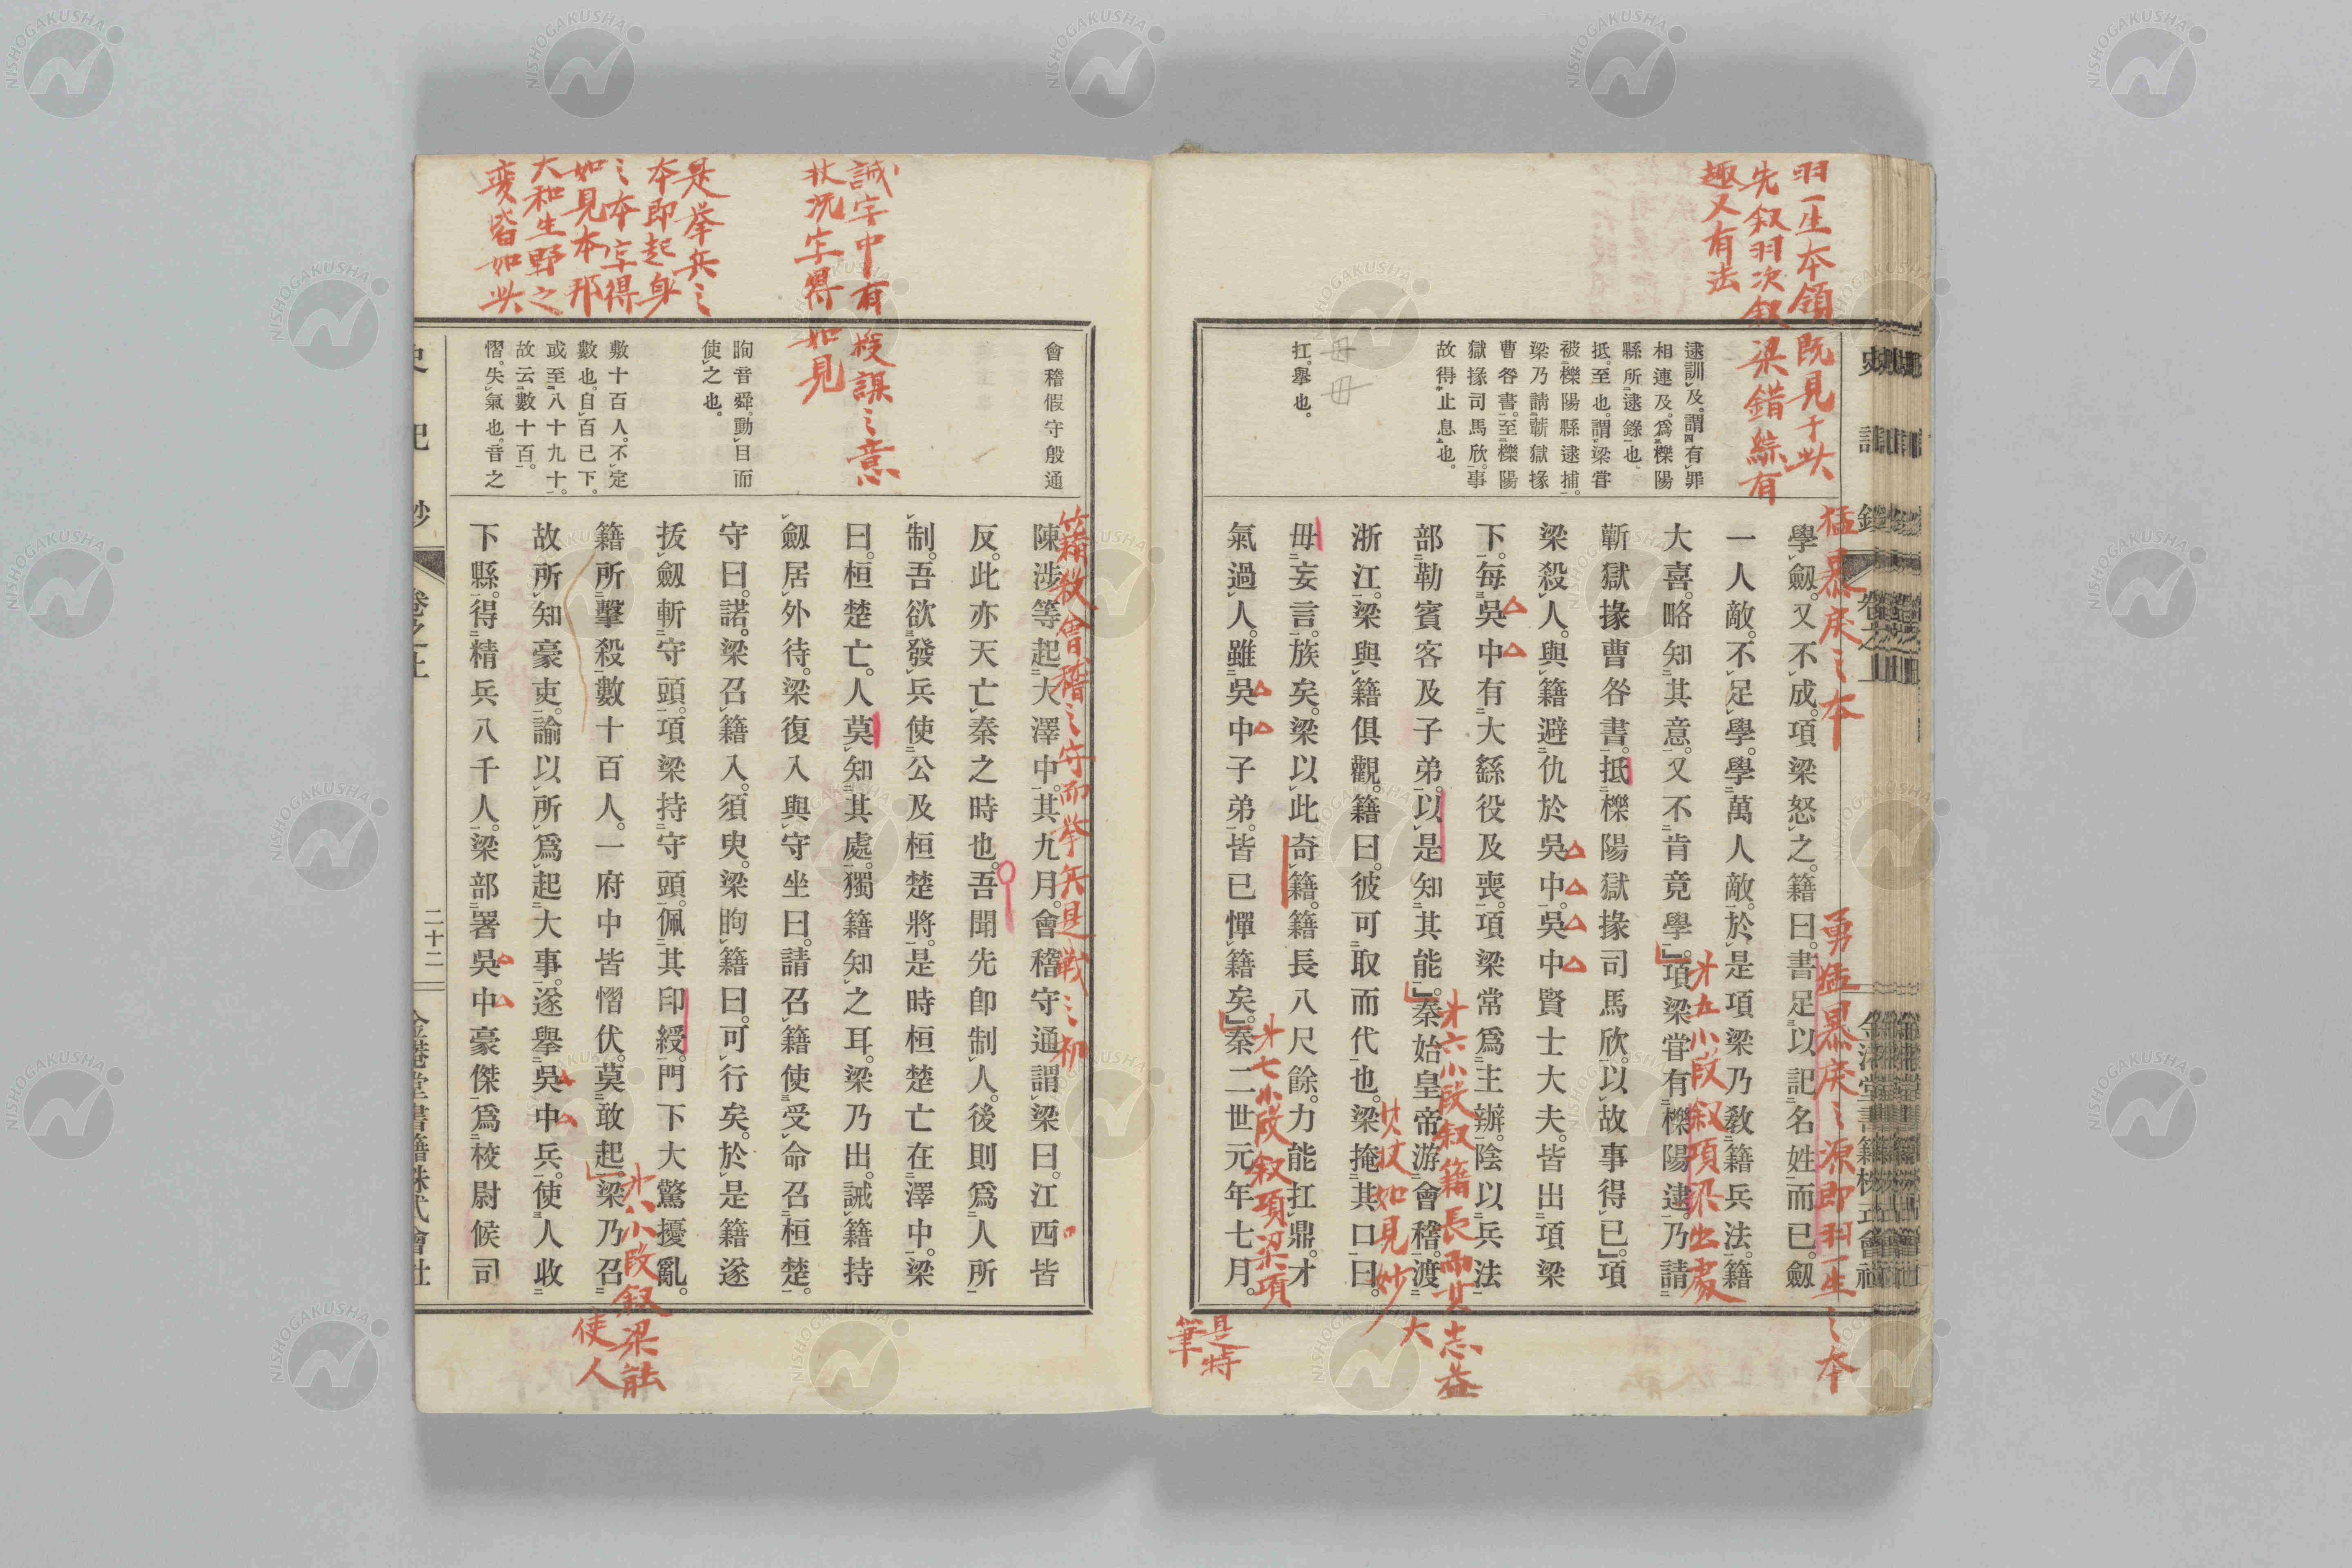 羽一生本領既見于此
先叙羽次叙梁錯綜有
趣又有法
逮訓及。謂有罪
相連及。爲櫟陽
縣所逮錄也
抵。至也。謂梁嘗
被櫟陽縣逮捕。
梁乃請蘄獄掾
曹咎書。至櫟陽
獄掾司馬欣。事
故得止息也。
毋毌
扛。擧也。
猛暴戾之本
勇猛暴戾之源即羽一生之本
學劒。又不成。項梁怒之。籍曰。書足以記名姓而已。劒
一人敵。不足學。學萬人敵。於是項梁乃敎籍兵法。籍
大喜。略知其意。又不肯竟學。項梁甞有櫟陽逮。乃請
第五小段叙項梁出處
蘄獄掾曹咎書。抵櫟陽獄掾司馬欣。以故事得已。項
梁殺人。與籍避仇於吳中。吳中賢士大夫。皆出項梁
下。每吳中有大繇役及喪。項梁常爲主辦。陰以兵法
第六小段叙籍長而其志益
大
部勒賓客及子弟。以是知其能。秦始皇帝游會稽。渡
狀如見妙
浙江。梁與籍俱觀。籍曰。彼可取而代也。梁掩其口曰。
毋妄言。族矣。梁以此奇籍。籍長八尺餘。力能扛鼎。才
第七小段叙項梁項
是特
筆
氣過人。雖吳中子弟。皆已憚籍矣。秦二世元年七月。
會稽假守殷通
誡字中有授謀之意
狀況字得如見
眴音舜。動目而
使之也。
是挙兵之
本即起身
之本字得
如見本那
大和生野之
変皆如此
數十百人。不定
數也。自百已下。
或至八十九十。
故云數十百。
慴。失氣也。音之
籍敎會稽之守而挙兵是戦之初
陳涉等起大澤中。其九月。會稽守通謂梁曰。江西皆
反。此亦天亡秦之時也。吾聞先卽制人。後則爲人所
制。吾欲發兵使公及桓楚將。是時桓楚亡在澤中。梁
曰。桓楚亡。人莫知其處。獨籍知之耳。梁乃出。誡籍持
劒居外待。梁復入與守坐曰。請召籍使受命召桓楚。
守曰。諾。梁召籍入。須臾。梁眴籍曰。可行矣。於是籍遂
拔劒斬守頭。項梁持守頭。佩其印綬。門下大驚擾亂。
第八小段叙梁能
使人
籍所擊殺數十百人。一府中皆慴伏。莫敢起。梁乃召
故所知豪吏。諭以所爲起大事。遂擧吳中兵。使人收
下縣。得精兵八千人。梁部署吳中豪傑爲校尉候司
二十二